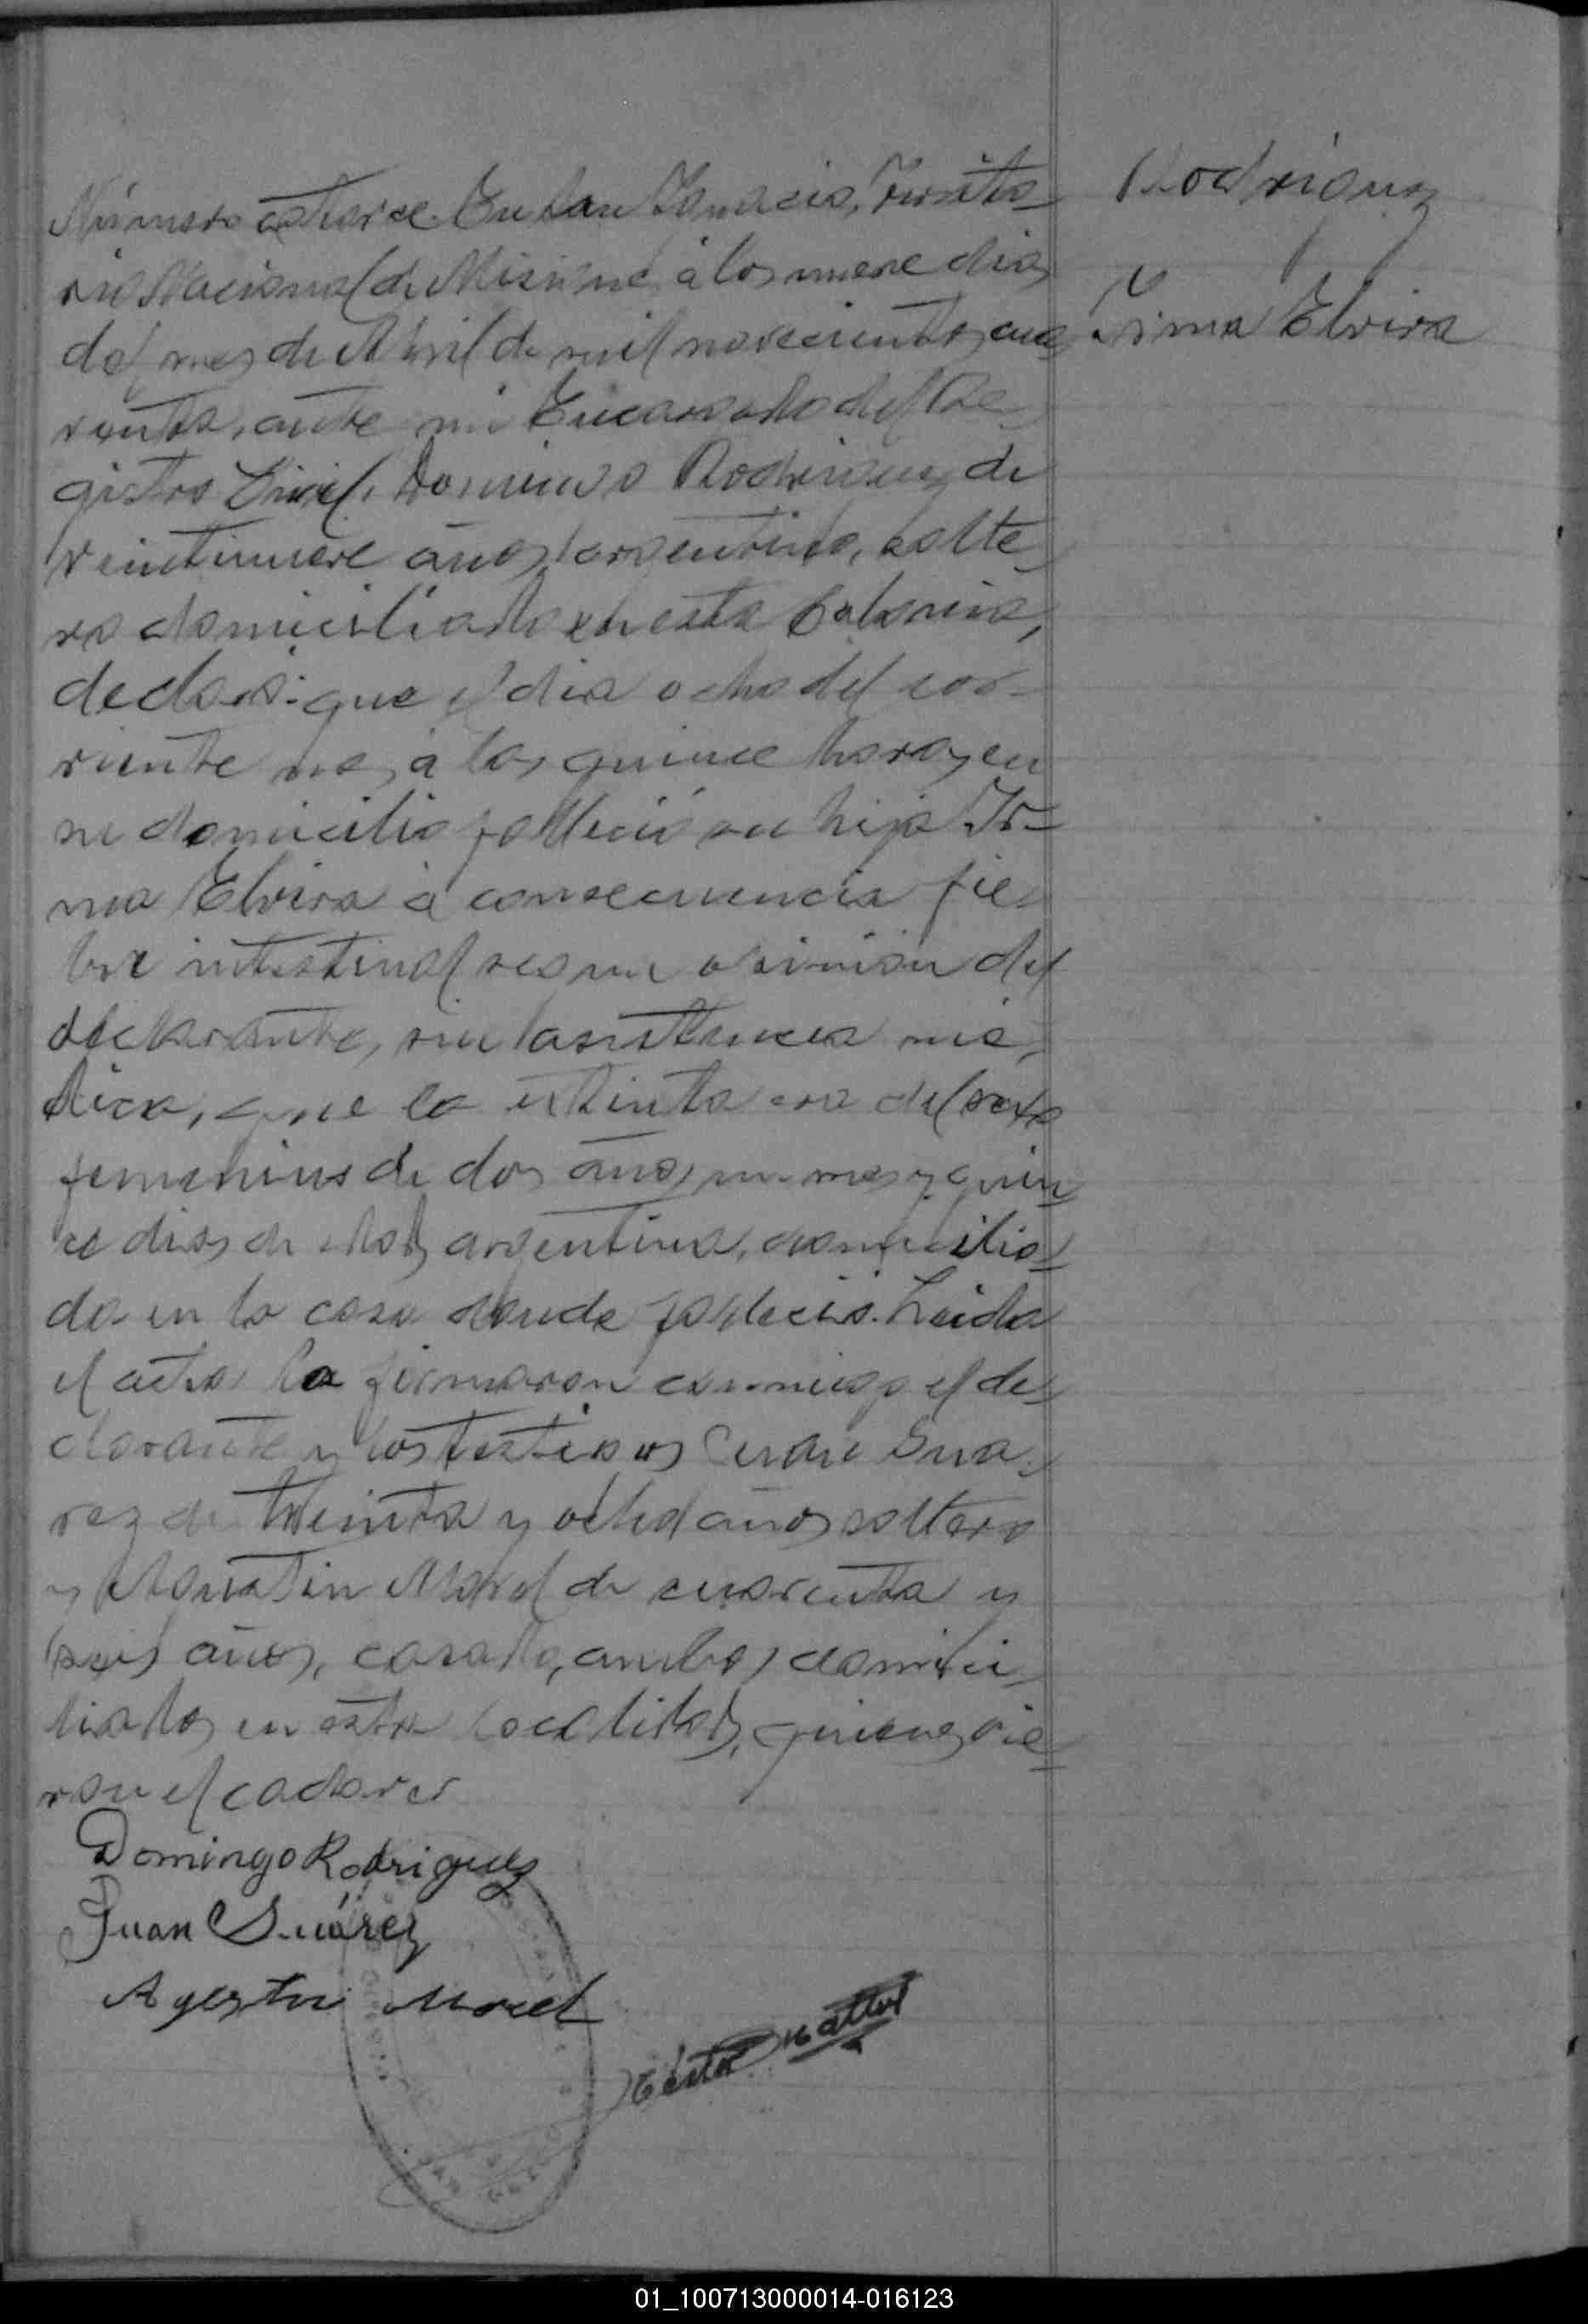 Rodriguez
Irma Elvira
Número catorce. En San Ignacio, Territo-
rio Nacional de Misiones, á los nueve dias
del mes de Abril de mil novecientos cua-
renta, ante mi Encargado del Re-
gistro Civil, Domingo Rodriguez, de
veintinueve años, argentino, solte-
ro domiciliado en esta Colonia,
declaró: que el dia ocho del cor-
riente mes, á las quince horas, en
su domicilio falleció su hija Ir-
ma Elvira á consecuencia fie-
bre intestinal segun opinión del
declarante, sin asistencia mé-
dica, que la extinta era del sexo
femenino de dos años, un mes y quin-
ce dias de edad, argentina, domicilia-
da en la casa donde falleció. Leida
el acta la firmaron conmigo el de-
clarante y los testigos Juan Sua-
rez de treinta y ocho años soltero
y Agustin Morel de cuarenta y
seis años, casado, ambos domici-
liados en esta localidad, quienes vie-
ron el cadaver
Domingo Rodriguez
Juan Suárez
Agustin Morel
01_100713000014-016123